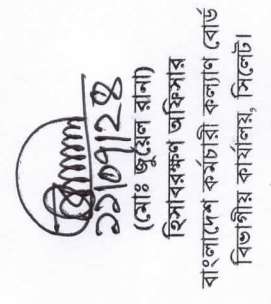 ১১/০৭/২৪
(মোঃ জুয়েল রানা)
হিসাবরক্ষণ অফিসার
বাংলাদেশ কর্মচারী কল্যাণ বোর্ড
বিভাগীয় কার্যালয়, সিলেট।